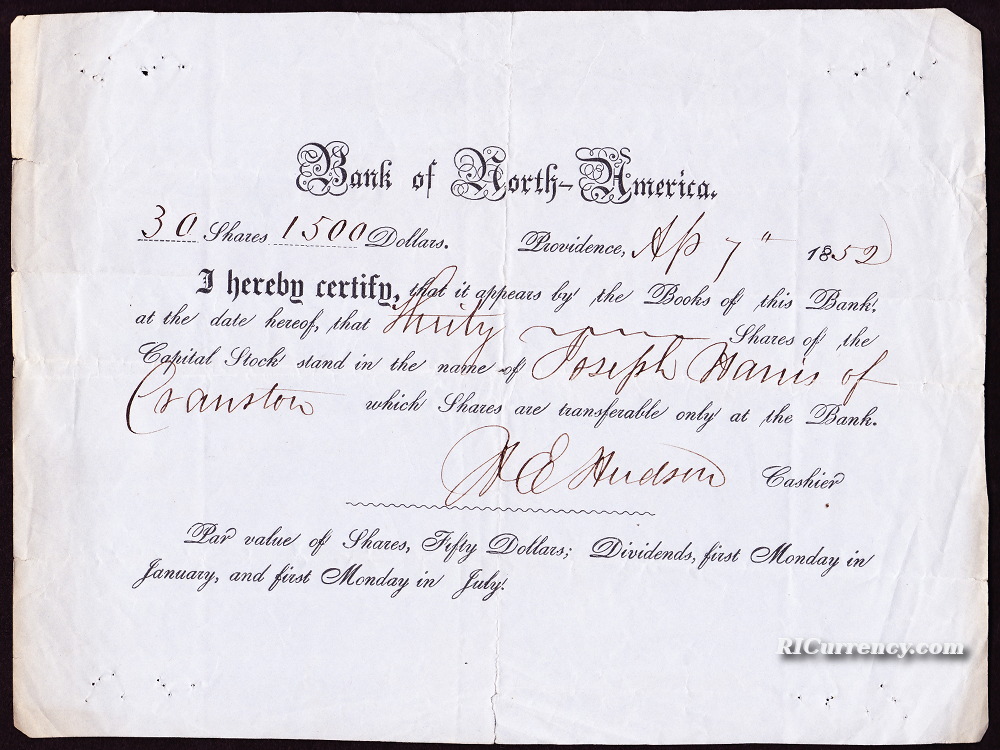 Bank of North-America.
30 Shares 1500 Dollars. Providence, Ap 7" 1852
I hereby certify, that it appears by the Books of this Bank,
at the date hereof, that Thirty Shares of the
Capital Stock stand in the name of Joseph Harris of
Cranston which Shares are transferable only at the Bank.
H E Hudson Cashier
Par value of Shares, Fifty Dollars; Dividends, first Monday in
January, and first Monday in July.
RICurrency.com